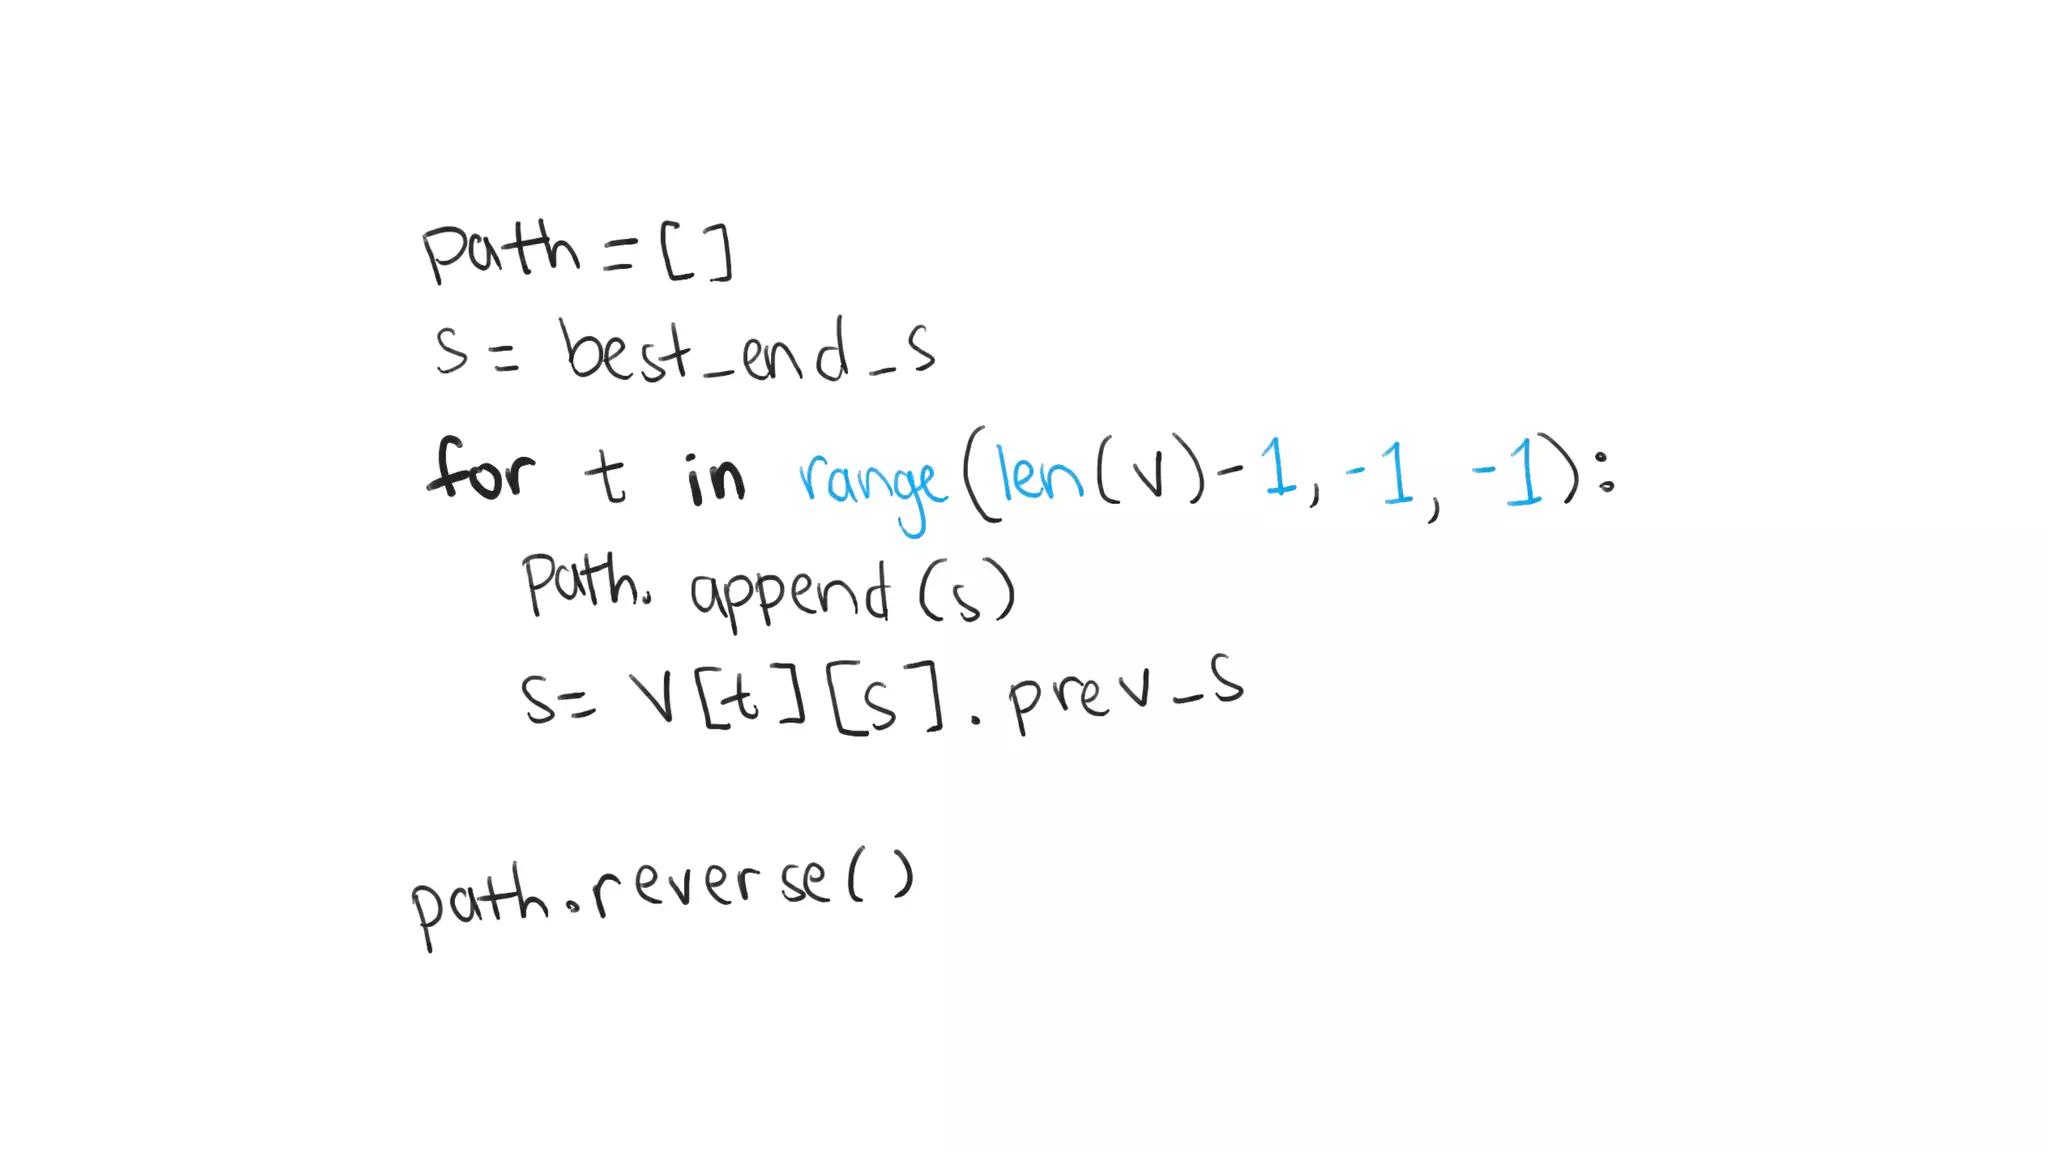 path = []
s = best_end_s
for t in range(len(v)-1, -1, -1):
path.append(s)
s = V[t][s].prev_s
path.reverse()